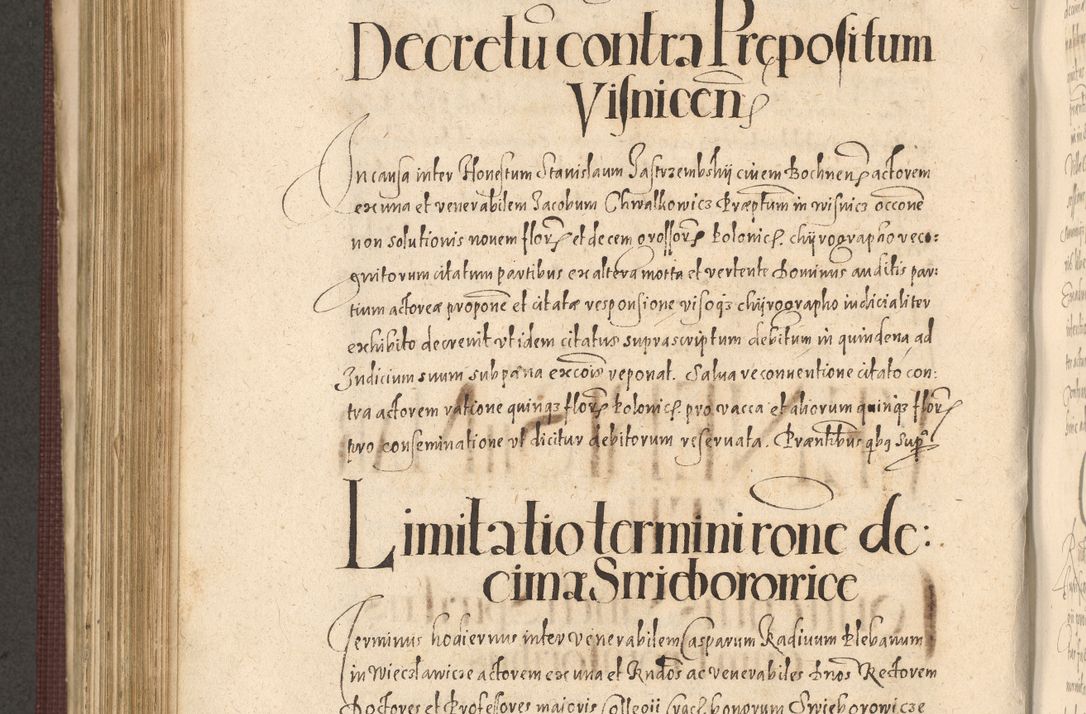 Decretū contra Prępositum
Visnicen̄
In causa inter Honestum Stanislaum Jastrzembskij ciuem Bochnen̄ actorem
ex una et venerabilem Jacobum Chwalkowicz Præptum in wisnicz occone
non solutionis nouem flor et decem grossor polonic. chijrographo reco:
gnitorum citatum partibus ex altera mota et vertente Dominus auditis par:
tium actoreæ propone et citatæ responsione visoq3 chijrographo iudicialiter
exhibito decreuit vt idem citatus suprascriptum debitum in quindena ad
Indicium suum sub pœna excois reponat. Salua reconuentione citato con:
tra actorem ratione quinq3 flor polonic. pro vacca et aliorum quinq3 flor
pro conseminatione vt dicitur debitorum reseruata. Præntibus qbq supr
Limitatio termini rone de:
cimæ Swieborowice
Terminus hodiernus inter venerabilem Casparum Radium Plebanum
in Wieczlawice actorem ex una et Rndos ac venerabiles dnos Rectorem
Doctores et Professores maioris Collegii Crac. bonorum Swieborowicze